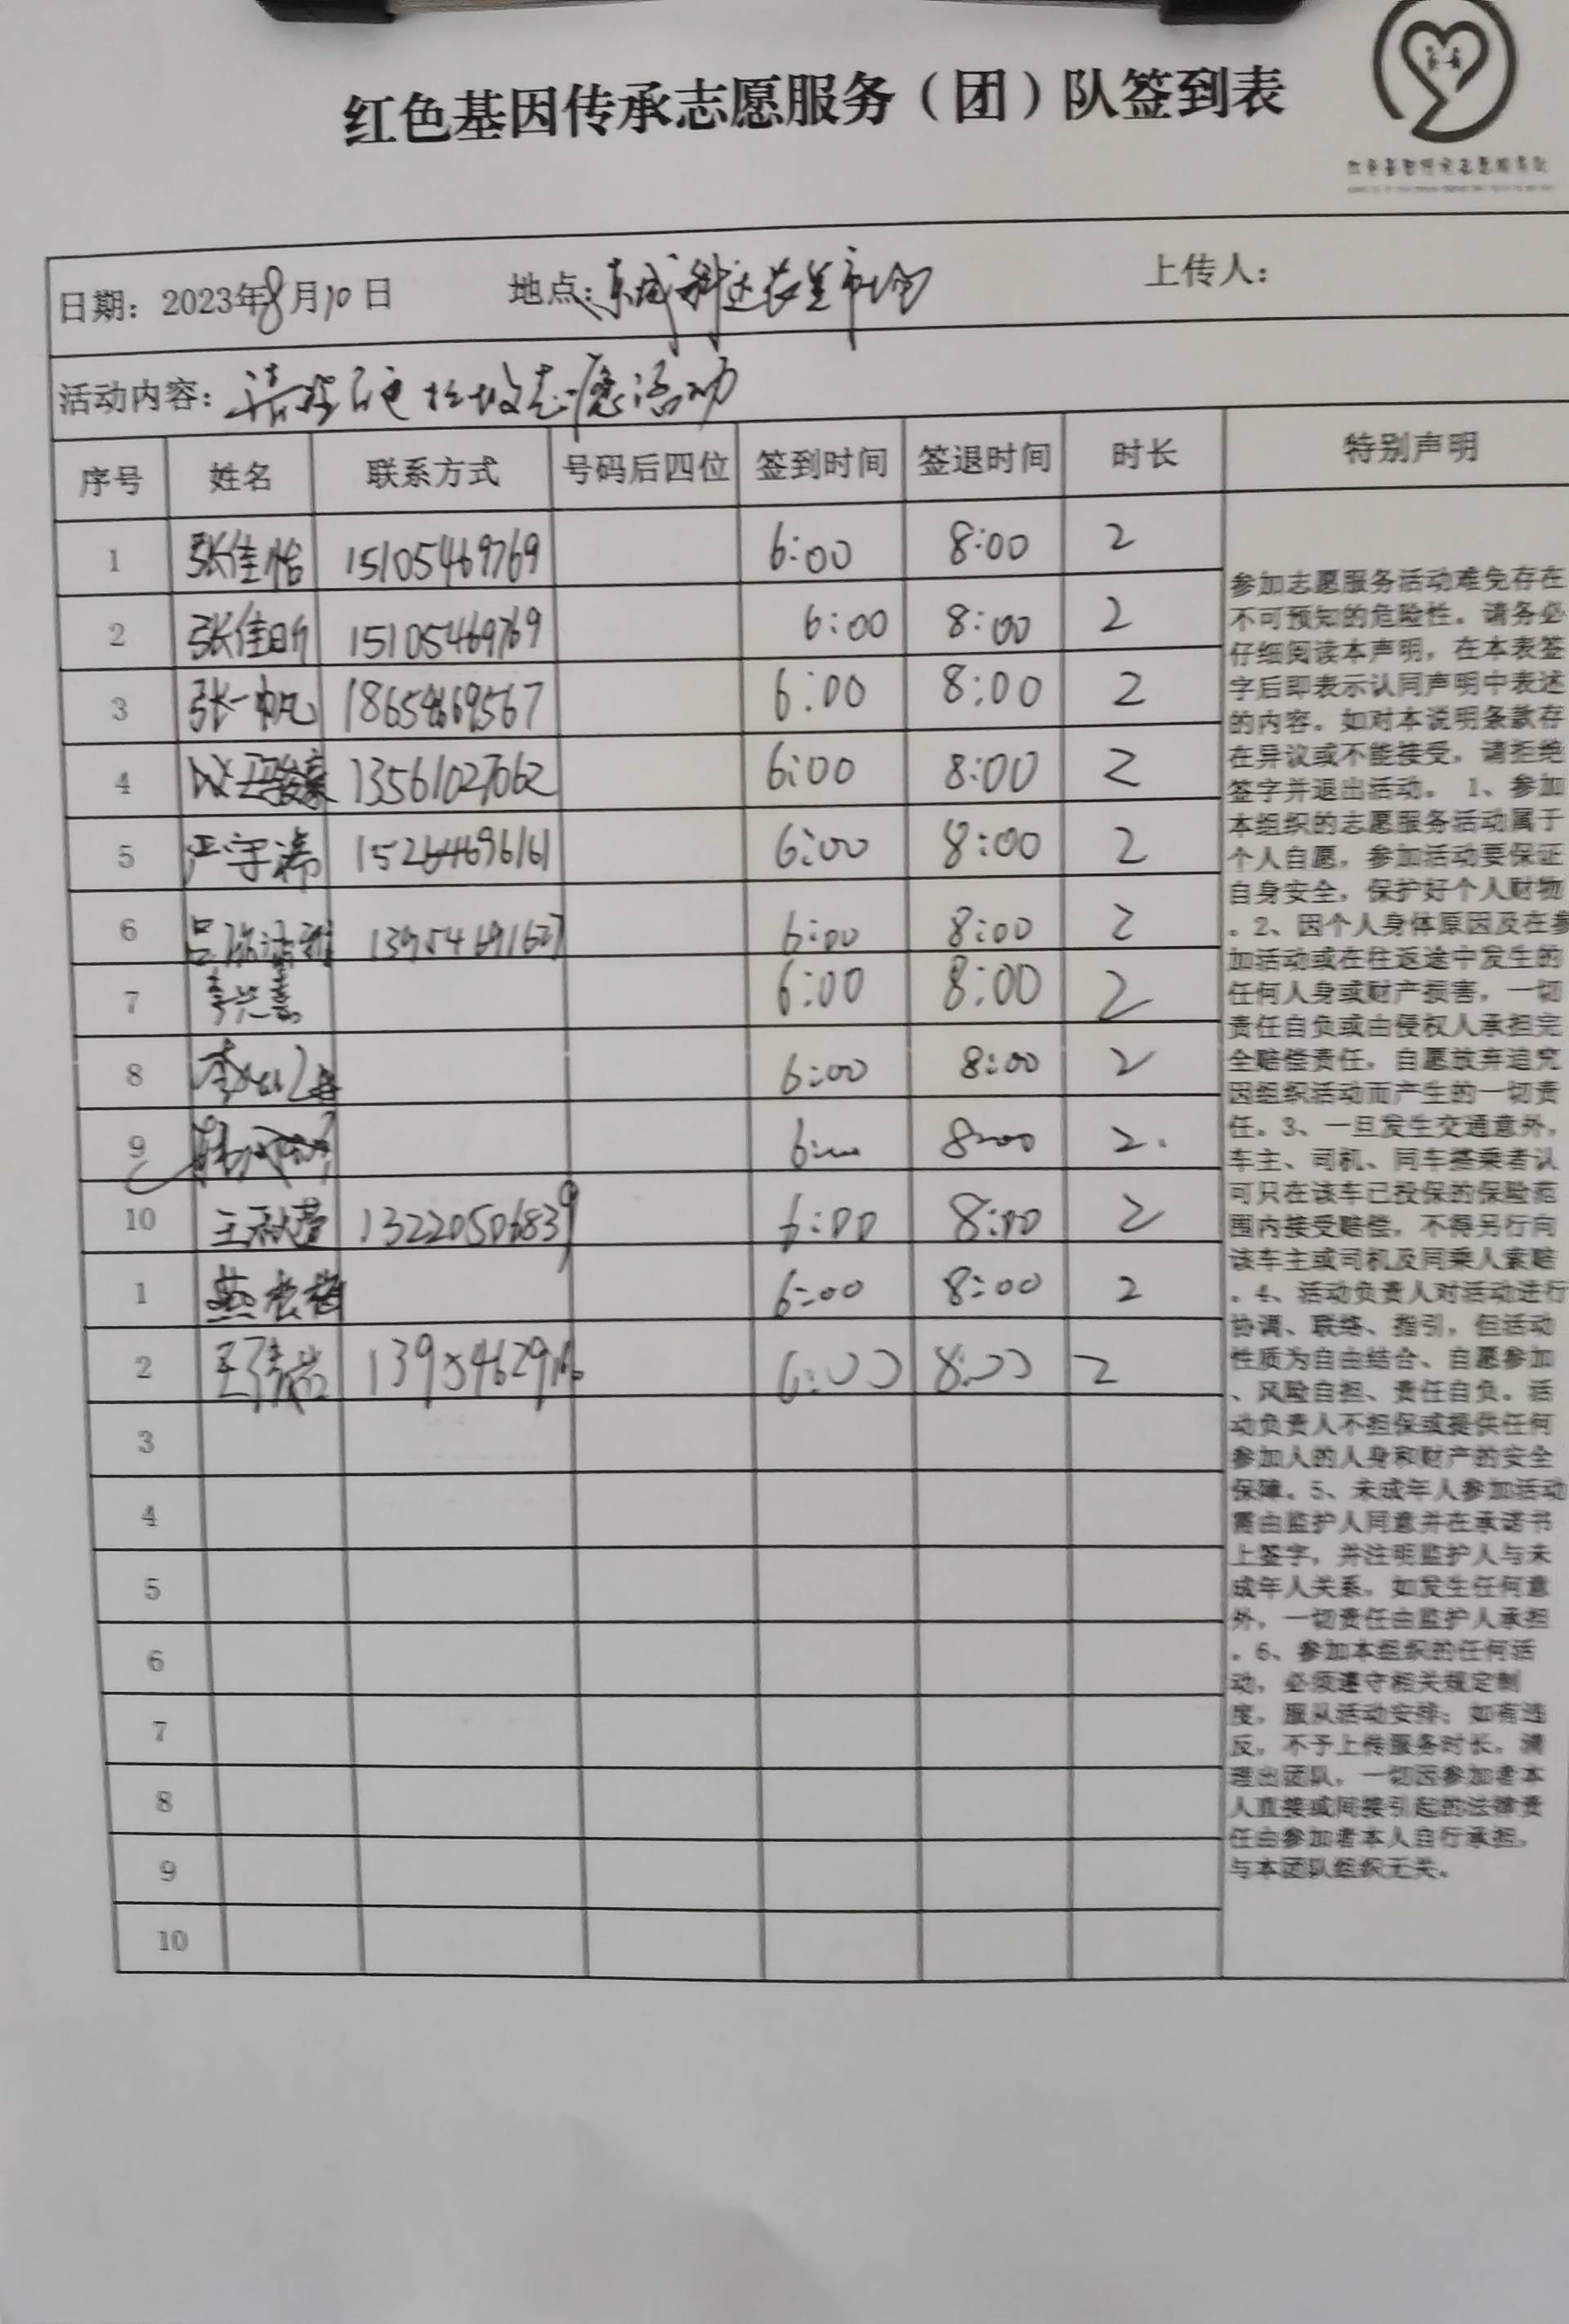 红色基因传承志愿服务（团）队签到表
日期：2023年8月10日 地点： 上传人：
活动内容： 志愿活动
序号 姓名 联系方式 号码后四位 签到时间 签退时间 时长 特别声明
1 张佳怡 15105469769 6:00 8:00 2
2 张佳昕 15105469769 6:00 8:00 2
3 张一帆 18654669567 6:00 8:00 2
4 13561027062 6:00 8:00 2
5 严宇涛 15264696161 6:00 8:00 2
6 6:00 8:00 2
7 李兴嘉 6:00 8:00 2
8 6:00 8:00 2
9 6:00 8:00 2.
10 王秋莹 13220506839 6:00 8:00 2
1 6:00 8:00 2
2 6:00 8:00 2
3
4
5
6
7
8
9
10
参加志愿服务活动难免存在
不可预知的危险性。请务必
仔细阅读本声明，在本表签
字后即表示认同声明中表述
的内容。如对本说明条款存
在异议或不能接受，请拒绝
签字并退出活动。 1、参加
本组织的志愿服务活动属于
个人自愿，参加活动要保证
自身安全，保护好个人财物
。2、因个人身体原因及在参
加活动或在往返途中发生的
任何人身或财产损害，一切
责任自负或由侵权人承担完
全赔偿责任，自愿放弃追究
因组织活动而产生的一切责
任。3、一旦发生交通意外，
车主、司机、同车搭乘者认
可只在该车已投保的保险范
围内接受赔偿，不得另行向
该车主或司机及同乘人索赔
。4、活动负责人对活动进行
协调、联络、指引，但活动
性质为自由结合、自愿参加
、风险自担、责任自负。活
动负责人不担保或提供任何
参加人的人身和财产的安全
保障。5、未成年人参加活动
需由监护人同意并在承诺书
上签字，并注明监护人与未
成年人关系，如发生任何意
外，一切责任由监护人承担
。6、参加本组织的任何活
动，必须遵守相关规定制
度，服从活动安排；如有违
反，不予上传服务时长，清
理出团队，一切因参加者本
人直接或间接引起的法律责
任由参加者本人自行承担，
与本团队组织无关。